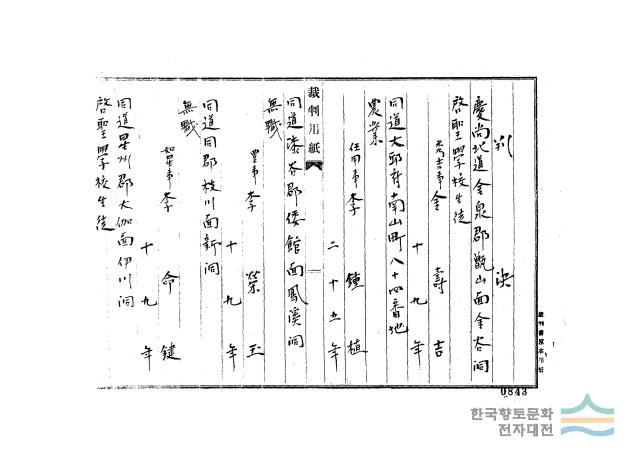 判決
慶尚北道金泉郡甑山面金谷洞
啓聖學校生徒
秀吉事 金壽吉
十九年
同道大邱府南山町八十四番地
農業
任用事 李鍾植
二十五年
裁判用紙
同道漆谷郡倭館面鳳溪洞
無職
聖事 李榮玉
十九年
同道同郡枝川面新洞
無職
如星事 李命鍵
十九年
同道星州郡大伽面伊川洞
啓聖學校生徒
裁判書原本用紙
0843
한국향토문화
전자대전